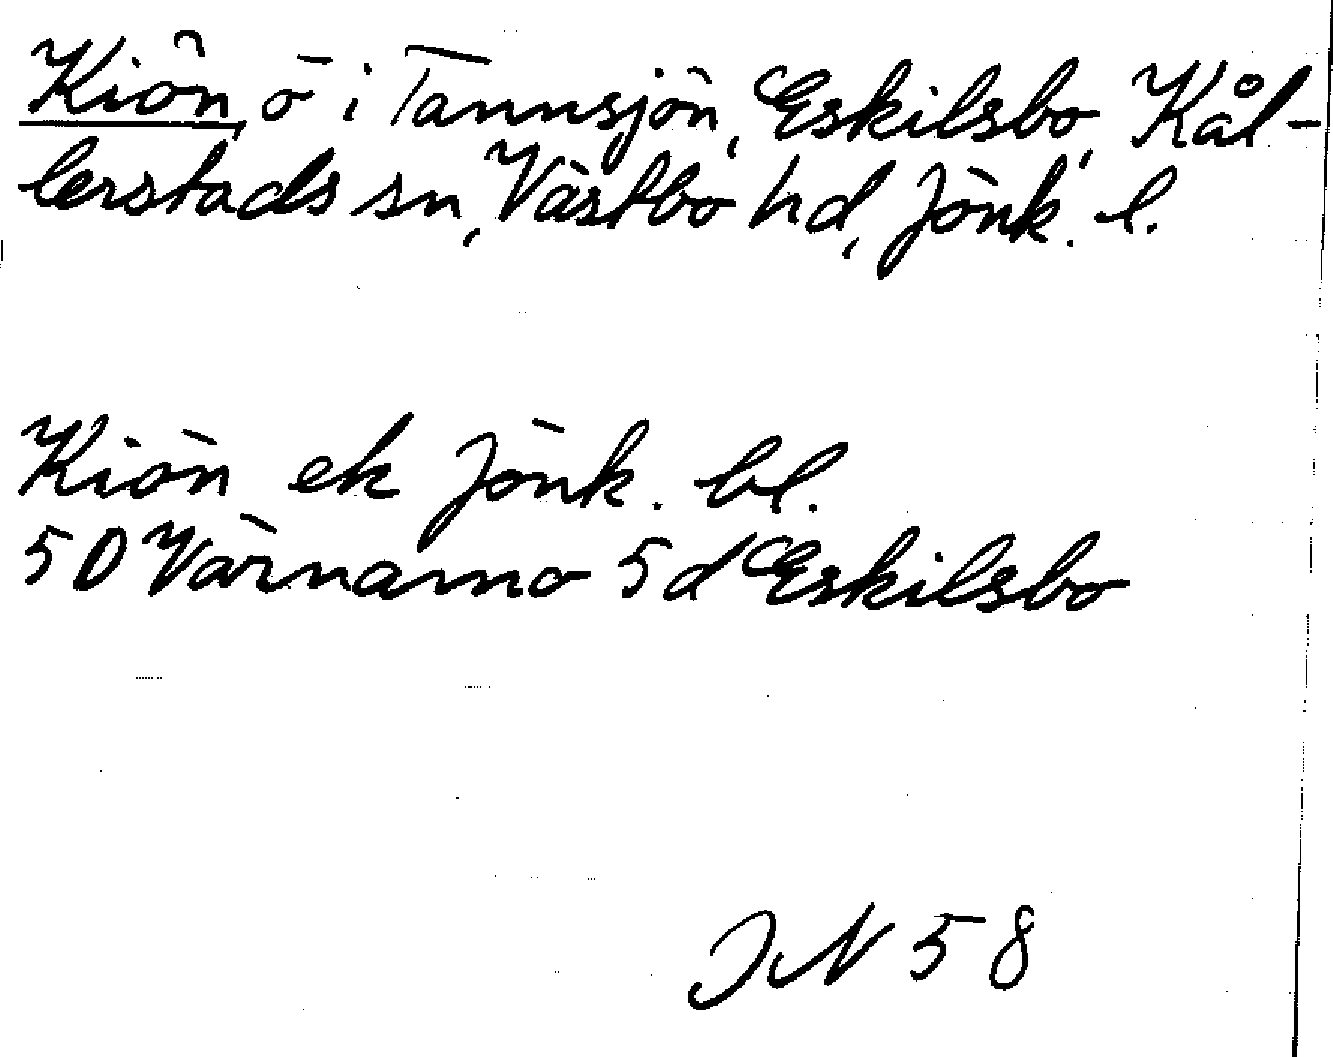 Kiön, ö i Tannsjön, Eskilsbo, Kål-
lerstads sn, Västbo hd, Jönk. l.
Kiön ek Jönk. bl.
5D Värnamo 5d Eskilsbo
JN 58